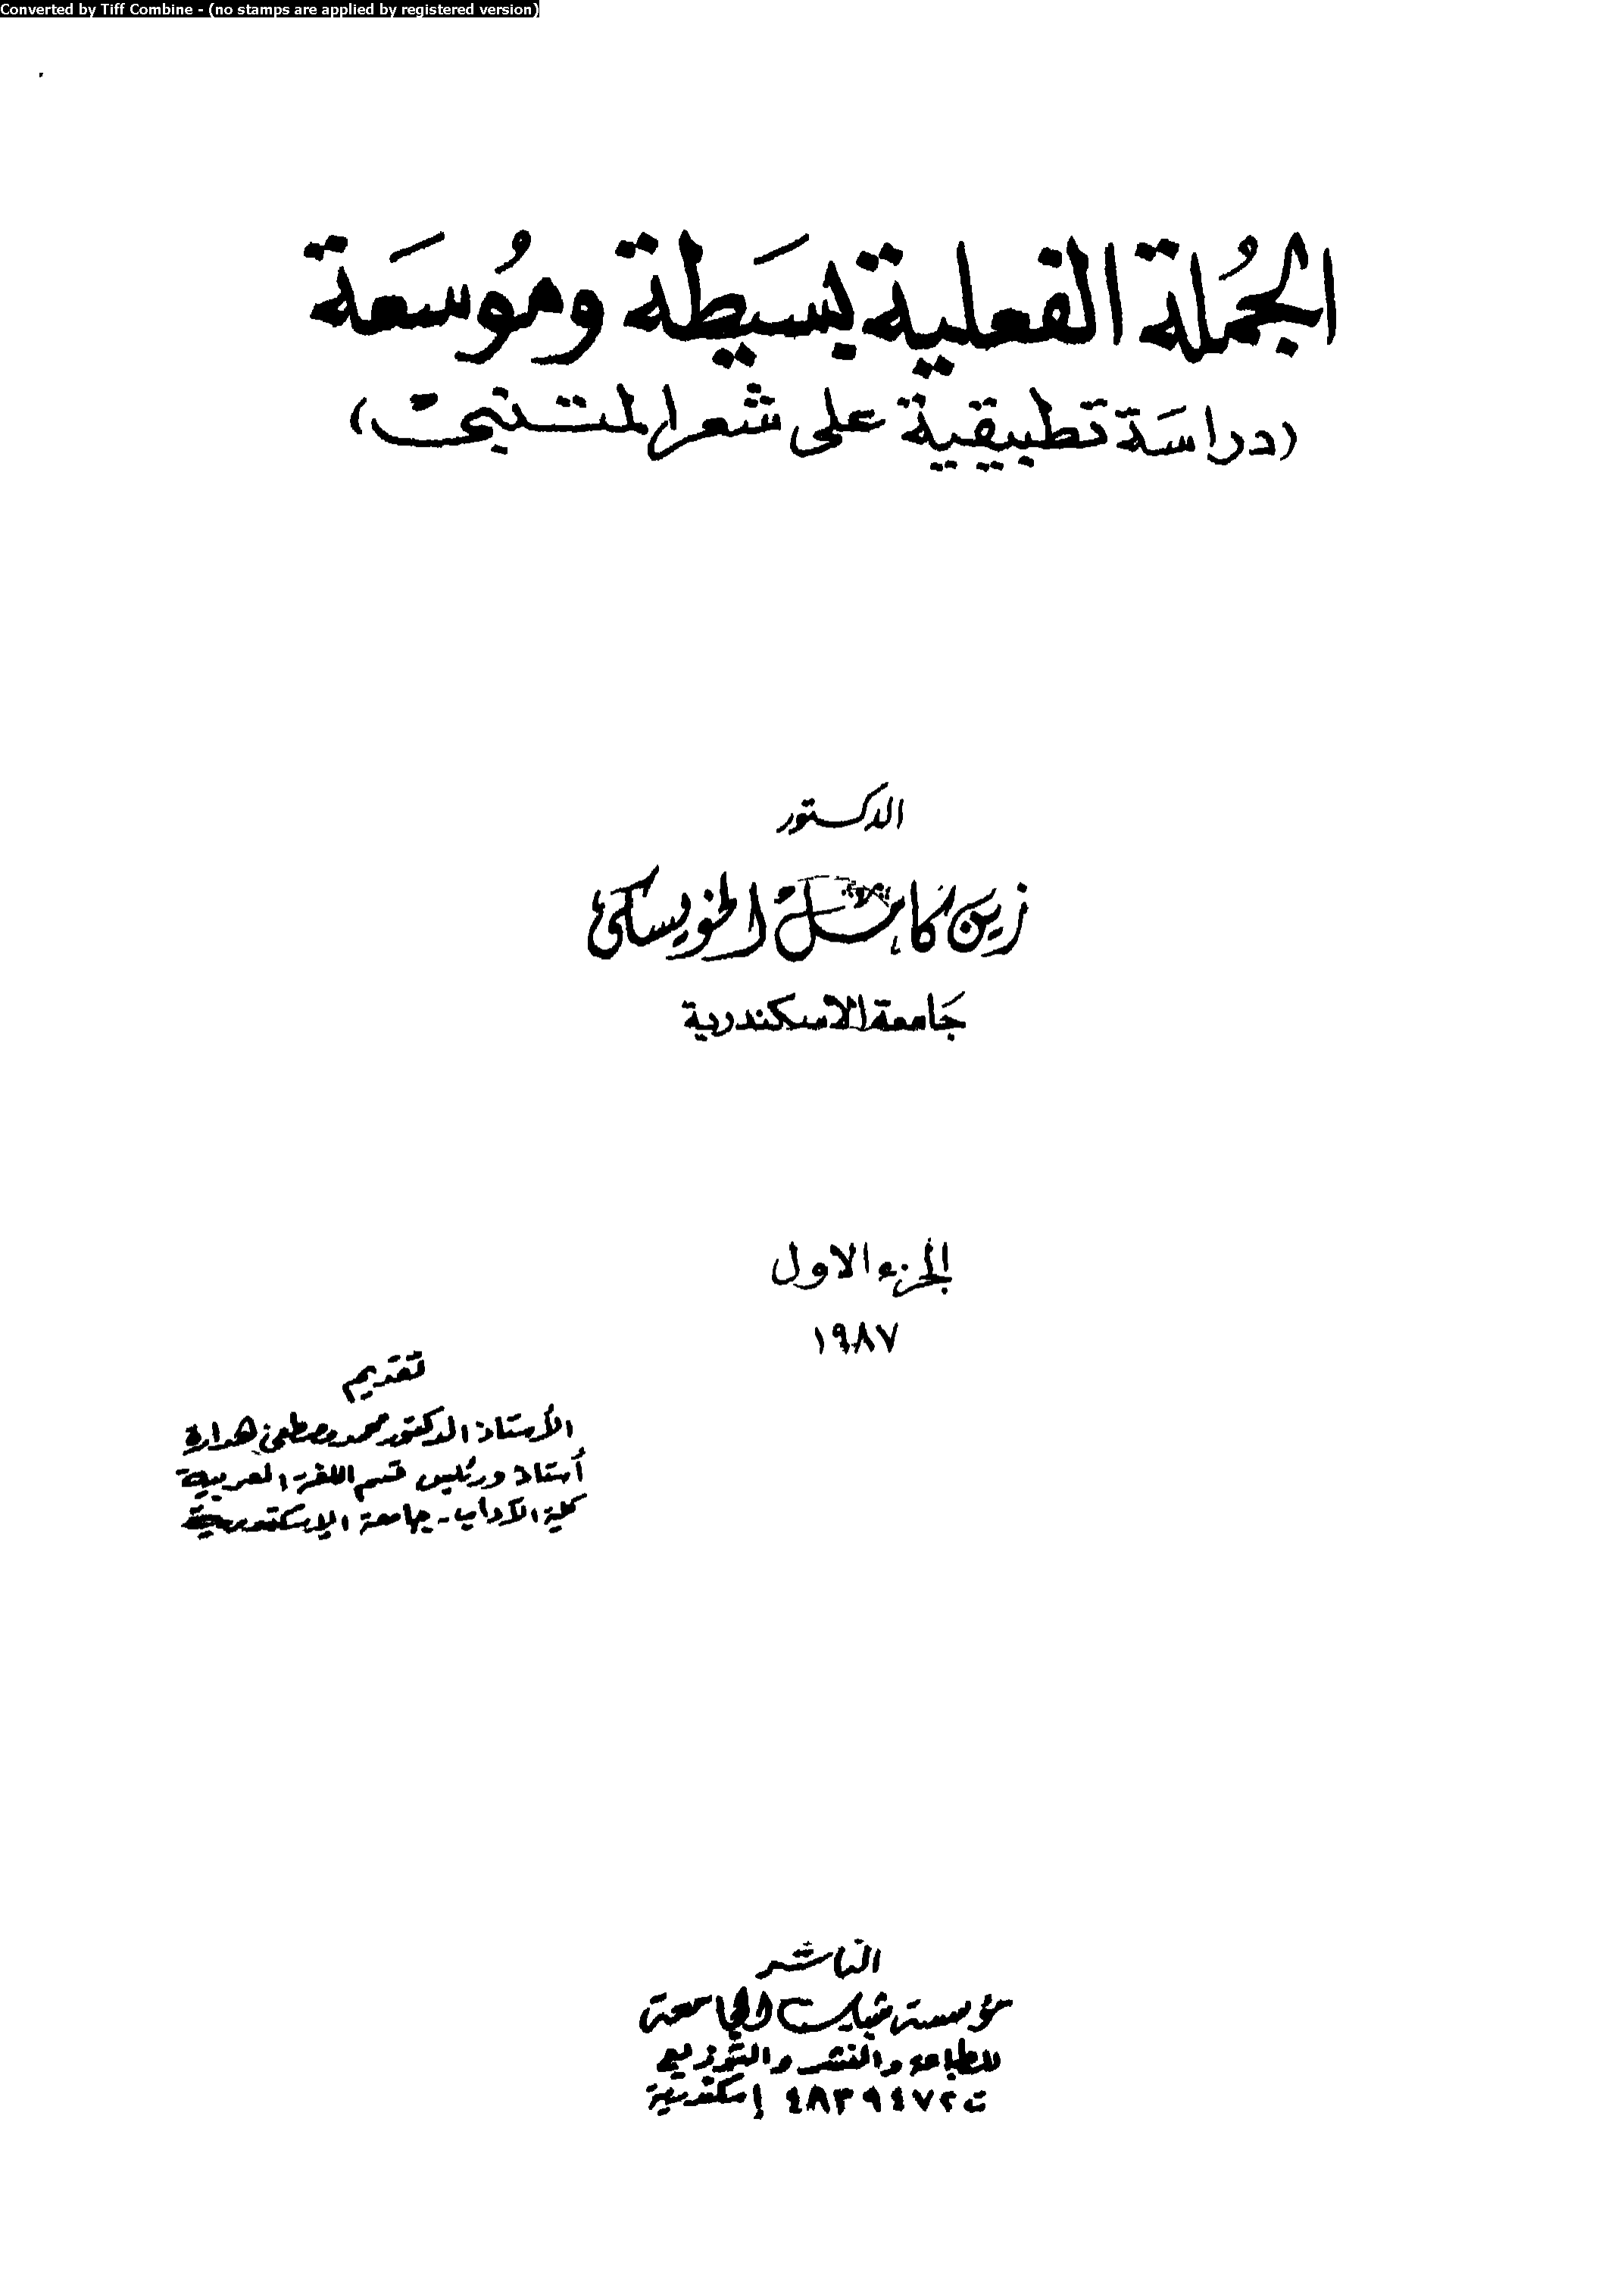 Converted by Tiff Combine - (no stamps are applied by registered version)
الجُملة الفعلية بسَيطة ومُوسَعة
(دراسَة تطبيقية على شعر المتنبى)
الدكتور
زين كامل الخويسكى
جَامعة الاسكندرية
الجزء الاول
١٩٨٧
تقديم
الأستاذ الدكتور محمد مصطفى هدارة
أستاذ ورئيس قسم اللغة العربية
كلية الآداب - جامعة الإسكندرية
الناشر
مؤسسة شباب الجامعة
للطباعة والنشر والتوزيع
ت ٤٨٣٩٤٧٢ إسكندرية